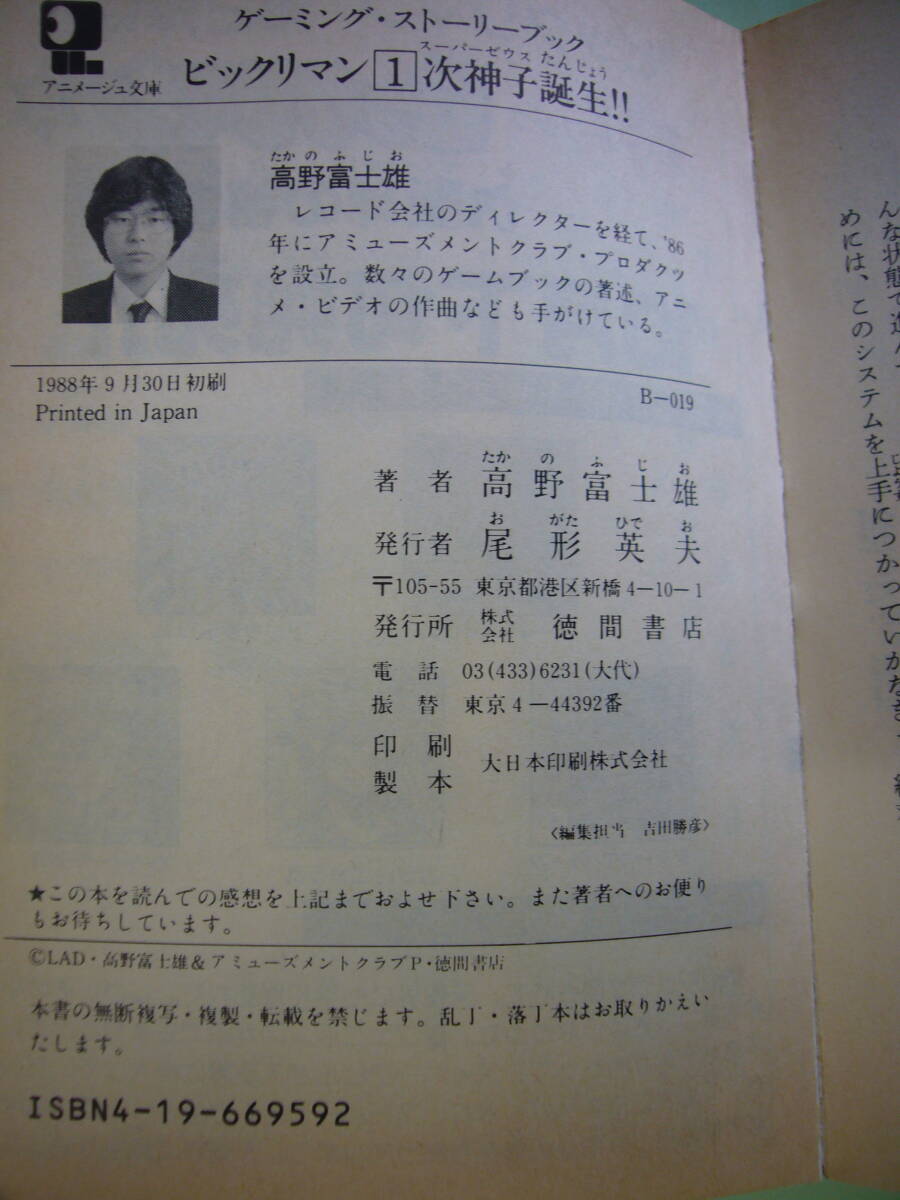 ゲーミング・ストーリーブック
スーパーゼウス たんじょう
ビックリマン1次神子誕生!!
アニメージュ文庫
たかのふじお
高野富士雄
レコード会社のディレクターを経て、'86
年にアミューズメントクラブ・プロダクツ
を設立。数々のゲームブックの著述、アニ
メ・ビデオの作曲なども手がけている。
1988年9月30日初刷
Printed in Japan
B-019
たか の ふ じ お
著者 高野富士雄
お がた ひで お
発行者 尾形英夫
〒105-55 東京都港区新橋4-10-1
発行所 株式会社 徳間書店
電話 03(433)6231(大代)
振替 東京4-44392番
印刷
製本 大日本印刷株式会社
〈編集担当 吉田勝彦〉
★この本を読んでの感想を上記までおよせ下さい。また著者へのお便り
もお待ちしています。
©LAD・高野富士雄&アミューズメントクラブP・徳間書店
本書の無断複写・複製・転載を禁じます。乱丁・落丁本はお取りかえい
たします。
ISBN4-19-669592
んな状態で進
めには、このシステムを上手につかっていかなき